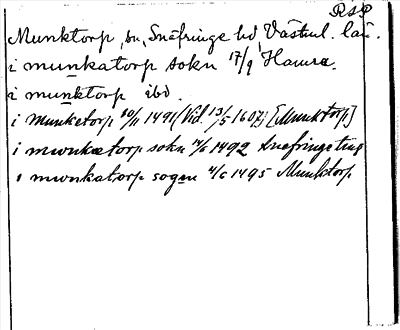 RSP
Munktorp, sn, Snäfringe hd, Västml. län.
i munkatorp sokn 17/9 Hamra.
i munktorp ibd.
i munketorp 10/11 1491 (Vid. 13/5 1607; [Munktorp]
i mwnkætorp sokn 14/6 1492 Snæfringe ting
i mwnkatorp sogen 4/6 1495 Munktorp